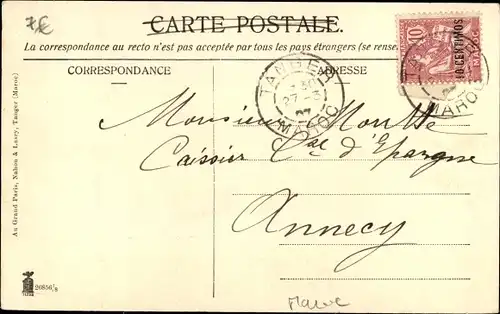 7€
CARTE POSTALE.
La correspondance au recto n'est pas acceptée par tous les pays étrangers (se rense
CORRESPONDANCE
ADRESSE
TANGER
27
07
MAROC
10
10 CENTIMOS
MAROC
Monsieur
Caissier Cse d'Epargne
Annecy
Maroc
Au Grand Paris, Nahon & Lasry, Tanger (Maroc)
20856